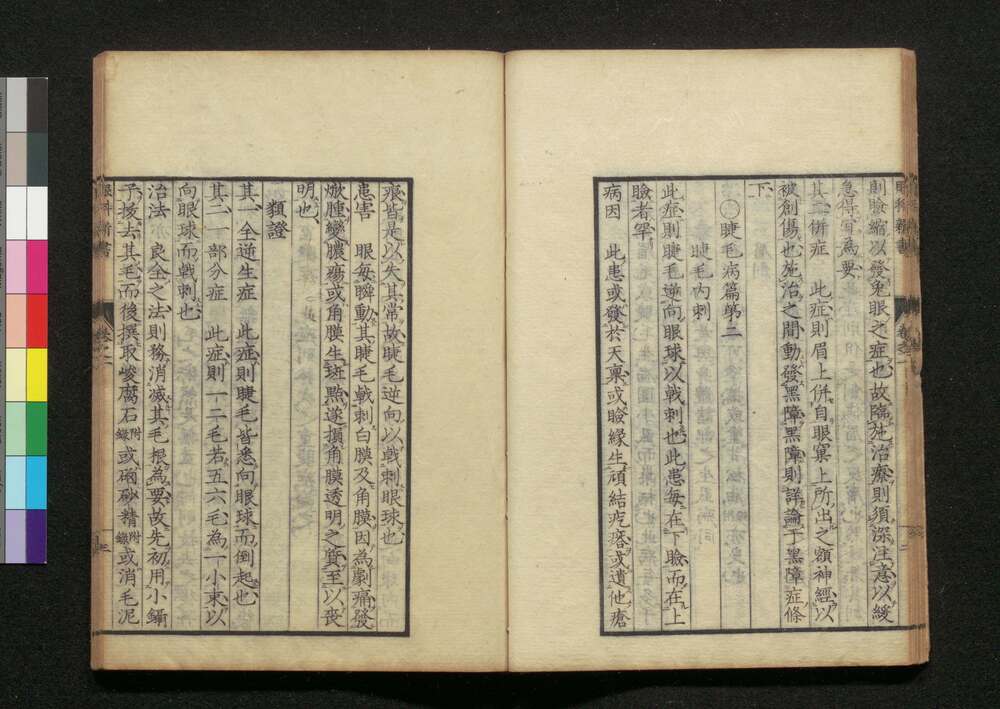 則瞼縮以發兎眼之症也故臨施治療則須深注意以緩
急得宜為要
其二併症　此症則眉上併自眼窠上所出之額神經以
被創傷也施治之間動發黑障黑障則詳論于黑障症條
下
〇睫毛病篇第二
睫毛内刺
此症則睫毛逆向眼球以戟刺也此患每在下瞼而在上
瞼者罕
病因　此患或發於天稟或瞼緣生頑結疙瘩或遺他瘡
痕皆是以失其常故睫毛逆向以戟刺眼球也
患害　眼每瞬動其睫毛戟刺白膜及角膜因為劇痛發
焮腫變膿瘍或角膜生斑點遂損角膜透明之質至以喪
明也
類證
其一全逆生症　此症則睫毛皆悉向眼球而倒起也
其二一部分症　此症則一二毛若五六毛為一小束以
向眼球而戟刺也
治法　良全之法則務消滅其毛根為要故先初用小鑷
子拔去其毛而後撰取峻腐石附錄或硇砂精附錄或消毛泥
眼科新書
卷之二